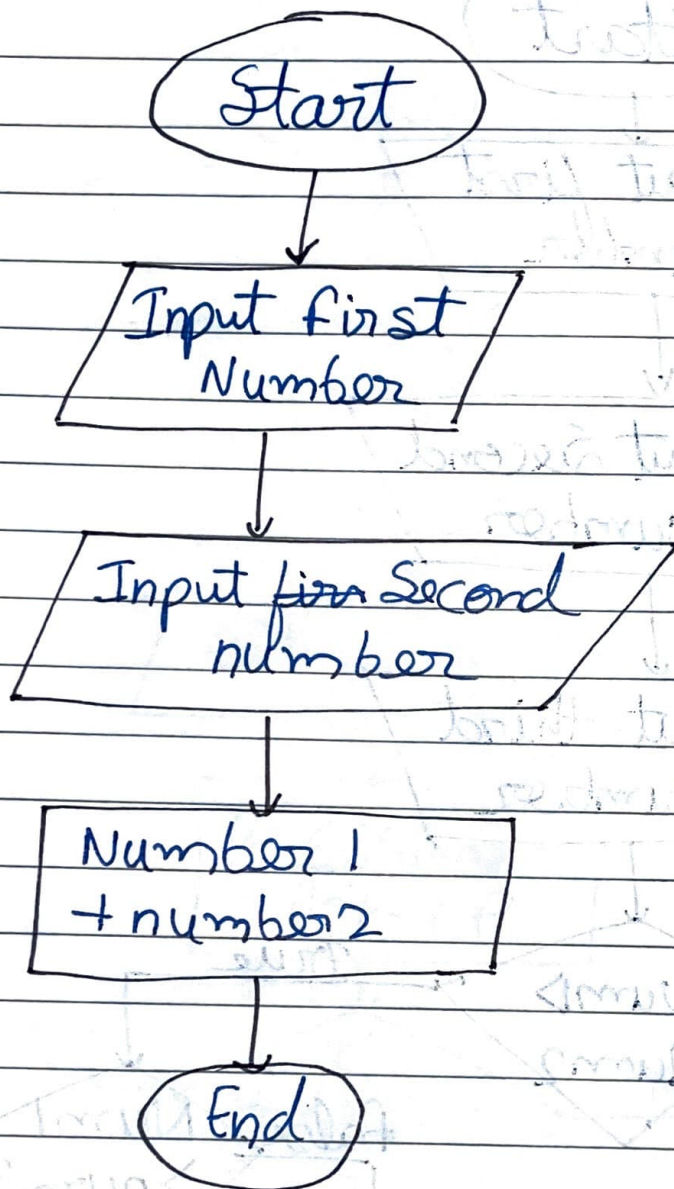 Start
Input first
Number
Input Second
number
Number 1
+ number2
End